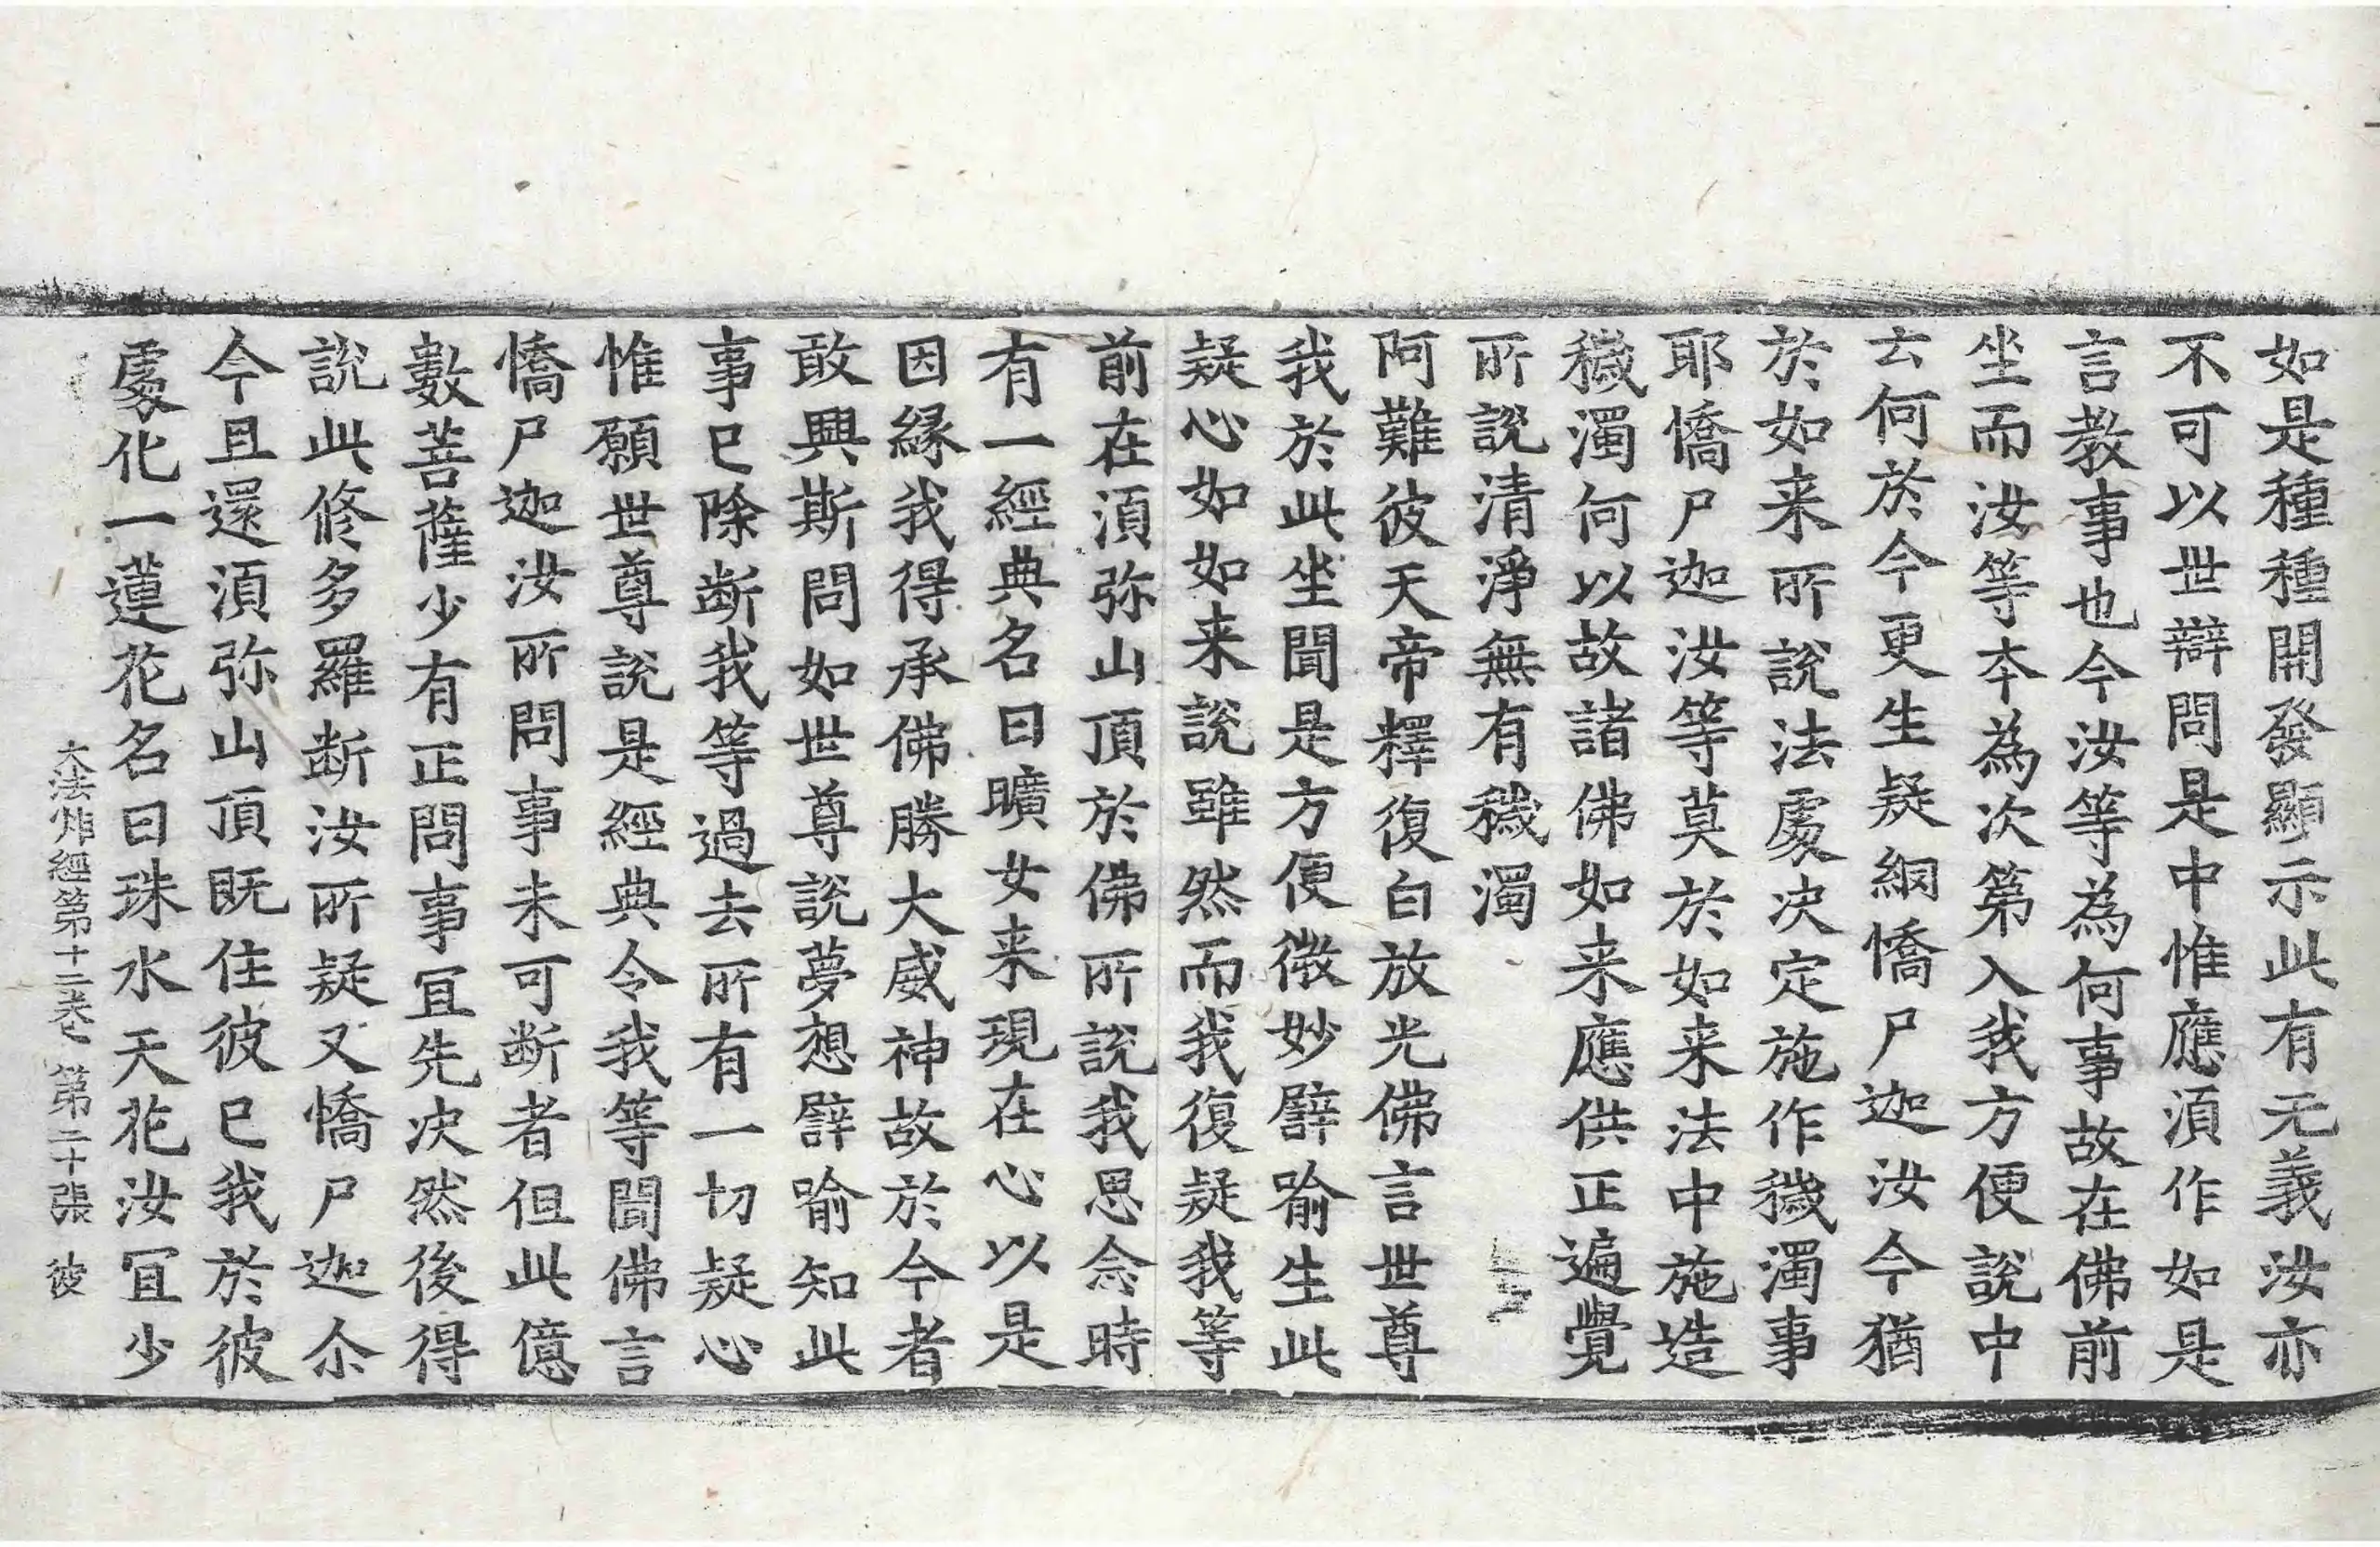 如是種種開發顯示此有元義汝亦
不可以世辯問是中惟應湏作如是
言教事也今汝等為何事故在佛前
坐而汝等本為次第入我方便說中
云何於今更生疑網憍尸迦汝今猶
於如来所說法處決定施作穢濁事
耶憍尸迦汝等莫於如来法中施造
穢濁何以故諸佛如来應供正遍覺
所說清淨無有穢濁
阿難彼天帝釋復白放光佛言世尊
我於此坐聞是方便微妙譬喻生此
疑心如如来說雖然而我復疑我等
前在湏弥山頂於佛所說我思念時
有一經典名曰曠女来現在心以是
因緣我得承佛勝大威神故於今者
敢興斯問如世尊說夢想譬喻知此
事已除断我等過去所有一切疑心
惟願世尊說是經典令我等聞佛言
憍尸迦汝所問事未可断者但此億
數菩薩少有正問事冝先決然後得
說此修多羅断汝所疑又憍尸迦尒
今且還湏弥山頂既住彼已我於彼
處化一蓮花名曰珠水天花汝冝少
大法炬經第十二卷 第二十張 彼